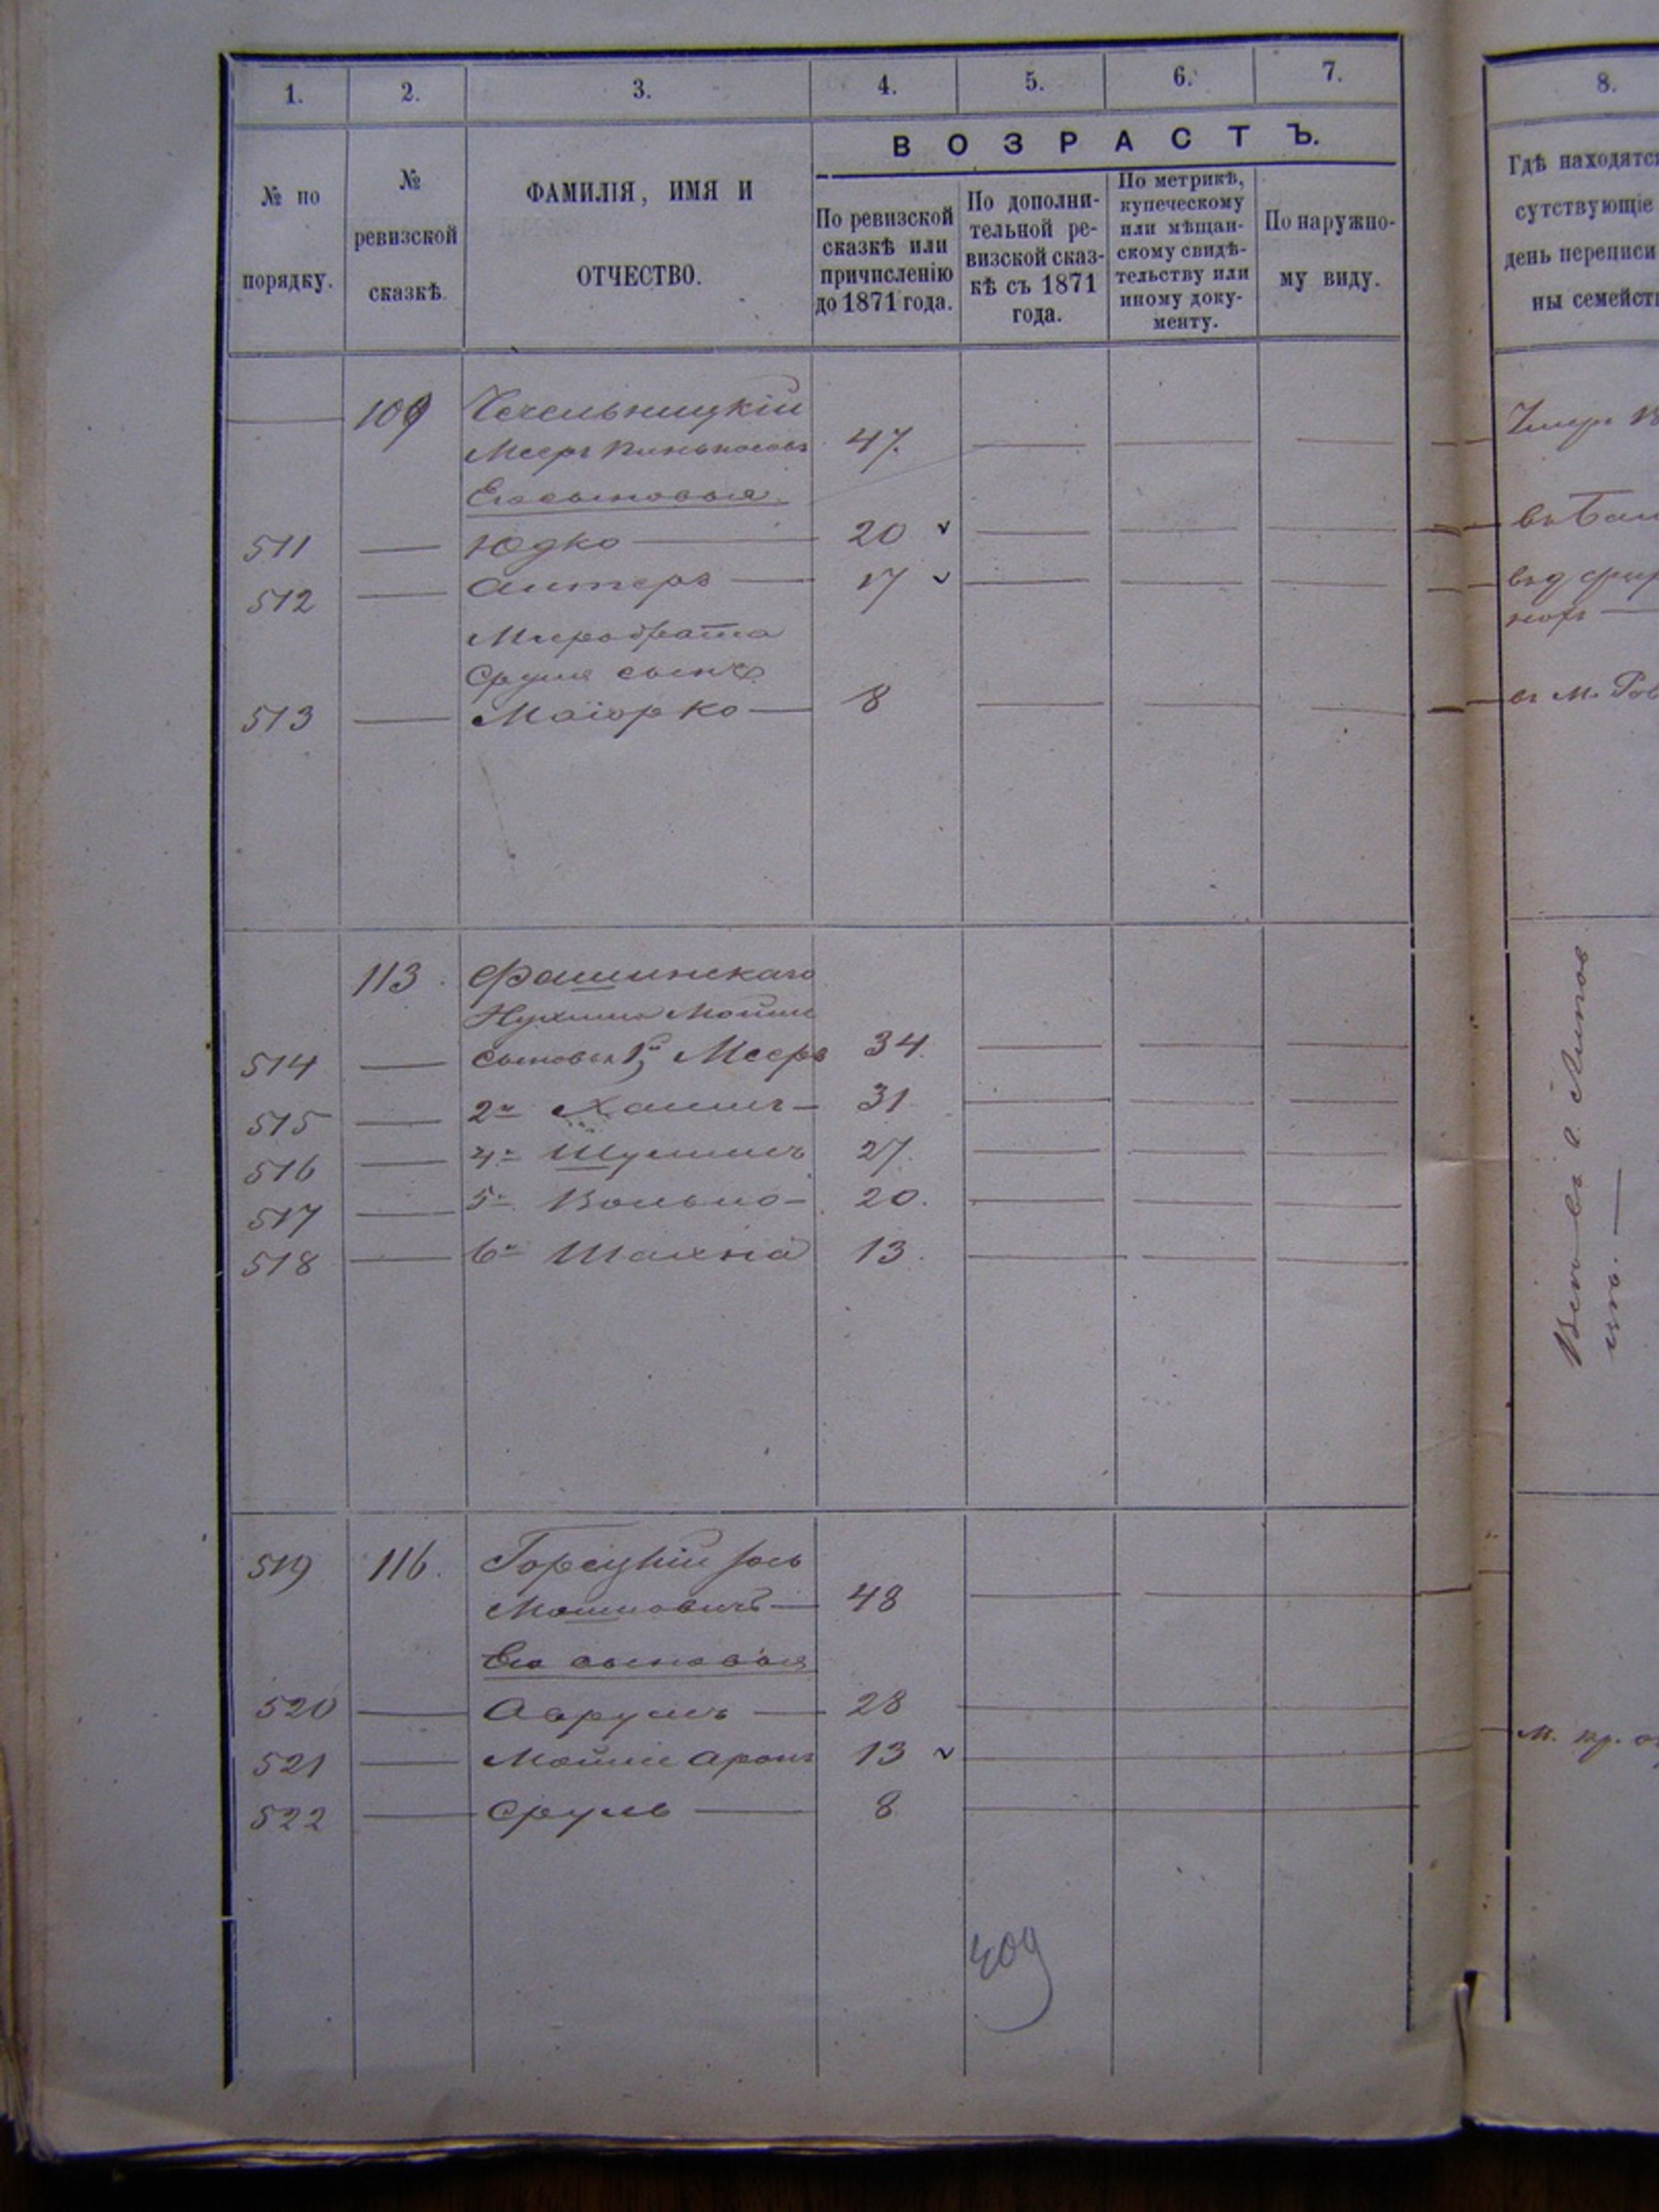 1. 2. 3. 4. 5. 6. 7. 8.
ВОЗРАСТЪ.
№ по
порядку.
№
ревизской
сказкѣ.
ФАМИЛІЯ, ИМЯ И
ОТЧЕСТВО.
По ревизской
сказкѣ или
причисленію
до 1871 года.
По дополни-
тельной ре-
визской сказ-
кѣ съ 1871
года.
По метрикѣ,
купеческому
или мѣщан-
скому свидѣ-
тельству или
иному доку-
менту.
По наружно-
му виду.
Гдѣ находятся
сутствующіе
день переписи
ны семейст
109 Чечельницкій
Мееръ Пиньковъ 47.
Его сыновья
511 Юдко 20
512 Антеръ 17
Мира брата
Сруля сынъ
513 Маіорко 8 въ м.
113. Фашинскаго
Нухима Мошки
514 сыновья 1й Мееръ 34.
515 2й Хаимъ 31
516 4й Шулимъ 27.
517 5й Волько 20.
518 6й Шахна 13.
519 116. Горецкій Іось
Мошковичъ 48
Его сыновья
520 Аврумъ 28
521 Мошко Аронъ 13
522 Сруль 8
409